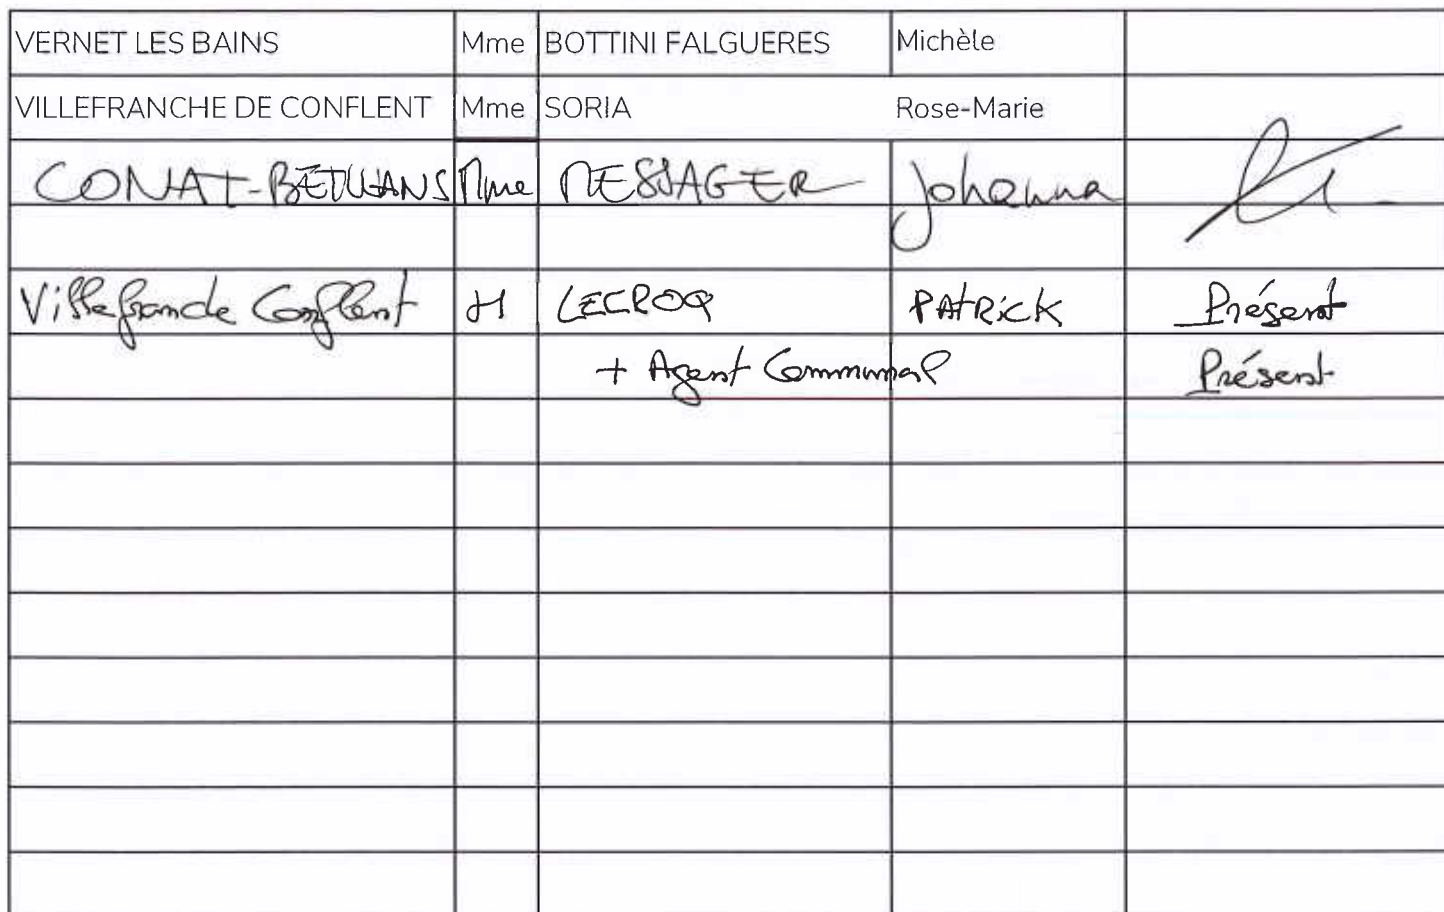 VERNET LES BAINS Mme BOTTINI FALGUERES Michèle
VILLEFRANCHE DE CONFLENT Mme SORIA Rose-Marie
CONAT-BETLLANS Mme MESSAGER Johanna
Villefranche Conflent M LECROQ PATRICK Présent
+ Agent Communal Présent